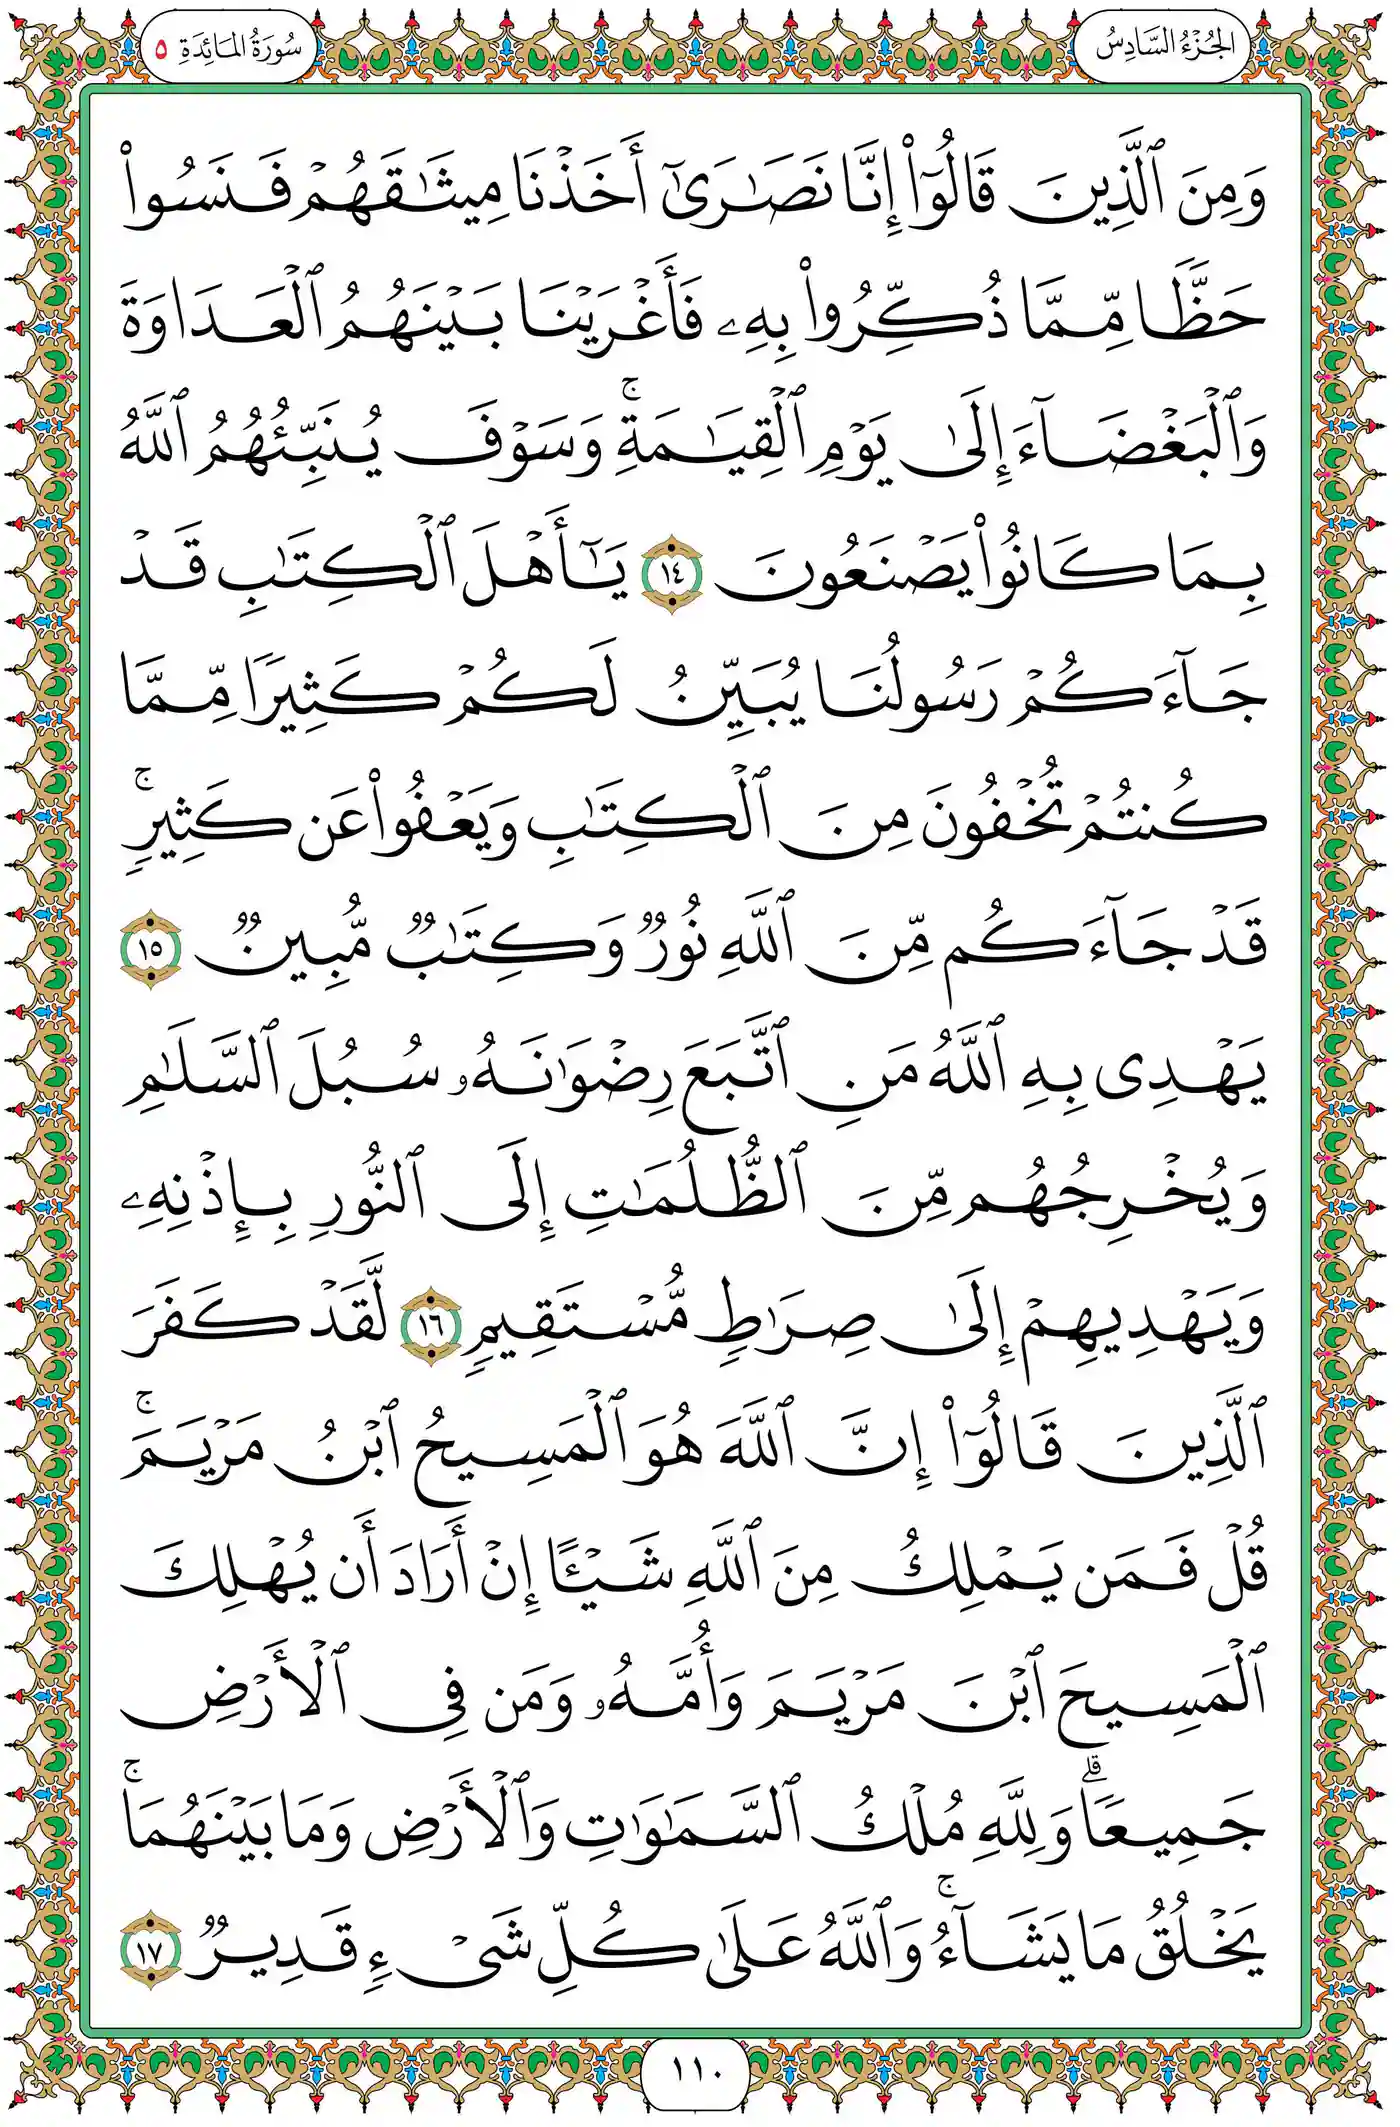 الجُزْءُ السَّادِسُ
سُورَةُ المَائِدَةِ ٥
وَمِنَ ٱلَّذِينَ قَالُوٓاْ إِنَّا نَصَٰرَىٰٓ أَخَذۡنَا مِيثَٰقَهُمۡ فَنَسُواْ
حَظّٗا مِّمَّا ذُكِّرُواْ بِهِۦ فَأَغۡرَيۡنَا بَيۡنَهُمُ ٱلۡعَدَاوَةَ
وَٱلۡبَغۡضَآءَ إِلَىٰ يَوۡمِ ٱلۡقِيَٰمَةِۚ وَسَوۡفَ يُنَبِّئُهُمُ ٱللَّهُ
بِمَا كَانُواْ يَصۡنَعُونَ ١٤ يَٰٓأَهۡلَ ٱلۡكِتَٰبِ قَدۡ
جَآءَكُمۡ رَسُولُنَا يُبَيِّنُ لَكُمۡ كَثِيرٗا مِّمَّا
كُنتُمۡ تُخۡفُونَ مِنَ ٱلۡكِتَٰبِ وَيَعۡفُواْ عَن كَثِيرٖۚ
قَدۡ جَآءَكُم مِّنَ ٱللَّهِ نُورٞ وَكِتَٰبٞ مُّبِينٞ ١٥
يَهۡدِي بِهِ ٱللَّهُ مَنِ ٱتَّبَعَ رِضۡوَٰنَهُۥ سُبُلَ ٱلسَّلَٰمِ
وَيُخۡرِجُهُم مِّنَ ٱلظُّلُمَٰتِ إِلَى ٱلنُّورِ بِإِذۡنِهِۦ
وَيَهۡدِيهِمۡ إِلَىٰ صِرَٰطٖ مُّسۡتَقِيمٖ ١٦ لَّقَدۡ كَفَرَ
ٱلَّذِينَ قَالُوٓاْ إِنَّ ٱللَّهَ هُوَ ٱلۡمَسِيحُ ٱبۡنُ مَرۡيَمَۚ
قُلۡ فَمَن يَمۡلِكُ مِنَ ٱللَّهِ شَيۡـًٔا إِنۡ أَرَادَ أَن يُهۡلِكَ
ٱلۡمَسِيحَ ٱبۡنَ مَرۡيَمَ وَأُمَّهُۥ وَمَن فِي ٱلۡأَرۡضِ
جَمِيعٗاۗ وَلِلَّهِ مُلۡكُ ٱلسَّمَٰوَٰتِ وَٱلۡأَرۡضِ وَمَا بَيۡنَهُمَاۚ
يَخۡلُقُ مَا يَشَآءُۚ وَٱللَّهُ عَلَىٰ كُلِّ شَيۡءٖ قَدِيرٞ ١٧
١١٠